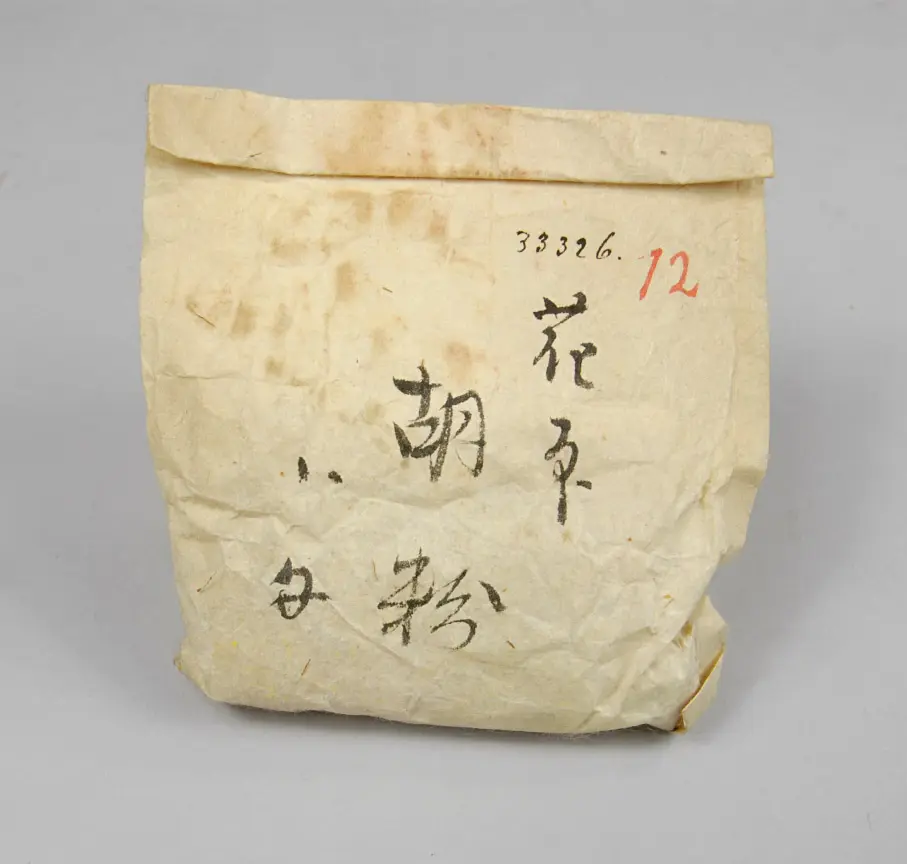 33326.
12
花印
胡粉
八匁